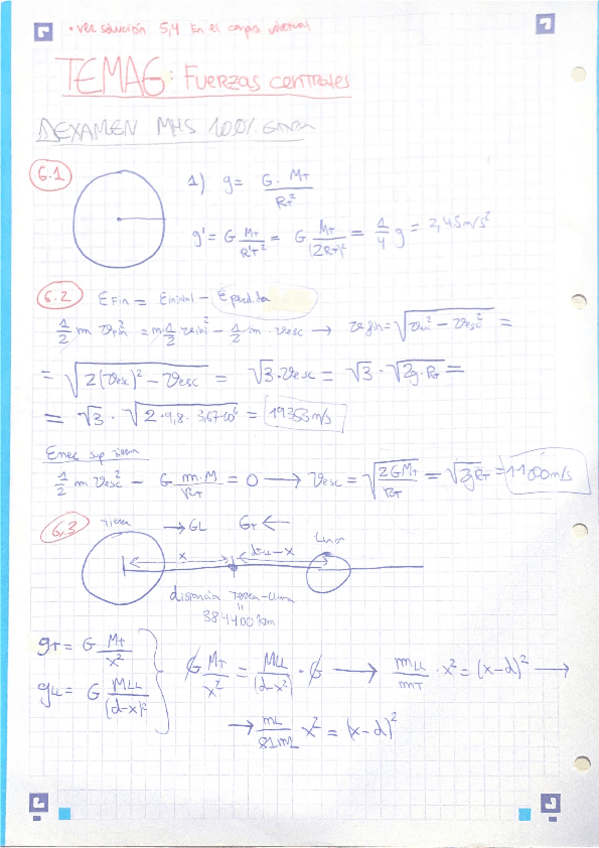 • Ver solución 5,4 En el campus virtual
TEMA 6: Fuerzas centrales
EXAMEN MHS 100%
6.1
1) g = G · M_T / R_T²
g' = G M_T / R'_T² = G M_T / (2R_T)² = 1/4 g = 2,45 m/s²
6.2 E_Fin = E_inicial - E_perdida
1/2 m v_fin² = m · 1/2 v_ini² - 1/2 · m · v_esc → v_fin = √(v_ini² - v_esc²) =
= √(2(v_esc)² - v_esc) = √3 · v_esc = √3 · √(2g · R_T) =
= √3 · √(2 · 9,8 · 3,67·10⁶) = 19353 m/s
Ener sup Tierra
1/2 m v_esc² - G m·M / R_T = 0 → v_esc = √(2GM_T / R_T) = √(2gR_T) = 11000 m/s
6.3 Tierra → GL G_T ← Luna
x d_TL - x
distancia Tierra-Luna
=
384400 km
g_T = G M_T / x²
g_LL = G M_LL / (d-x)²
G M_T / x² = M_LL / (d-x²) · G → m_LL / m_T · x² = (x-d)² →
→ m_L / 81m_L x² = (x-d)²